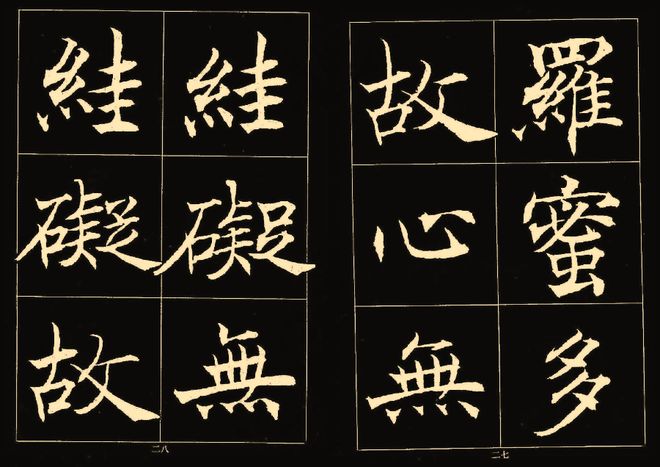 羅蜜多
故心無
二七
絓礙無
絓礙故
二八